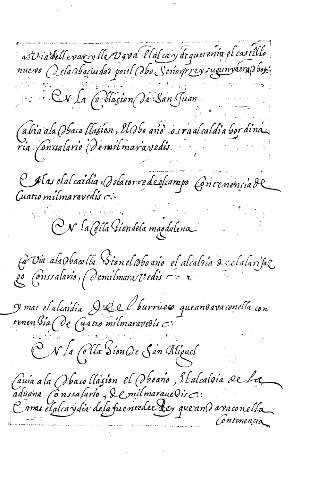 avia de llevar y lleva el alcayde que tenia el castillo
nuevo
En la Collaçion De San Juan
Cabia a la Dha collaçion, El Dho año otra alcaldia hordina
ria Con salario De mil maravedis
E Mas el alcaidia De la torre del campo Con tenencia de
Cuatro mil maravedis
En la Collaçion de la magdalena
Cavia a la Dha collaçion el Dho año el alcaldia de el alarifaz
go Con salario, De mil maravedis
y mas el alcaidia De el burrueco que andava con ella con
tenençia De cuatro mil maravedis
En la Collaçion De San Miguel
Cavia a la Dha collaçion el Dho año, El alcaldia de la
aduana Con salario, de mil maravedis
E mas el alcaydia de la fuente de el Rey que andava con ella
Con tenencia